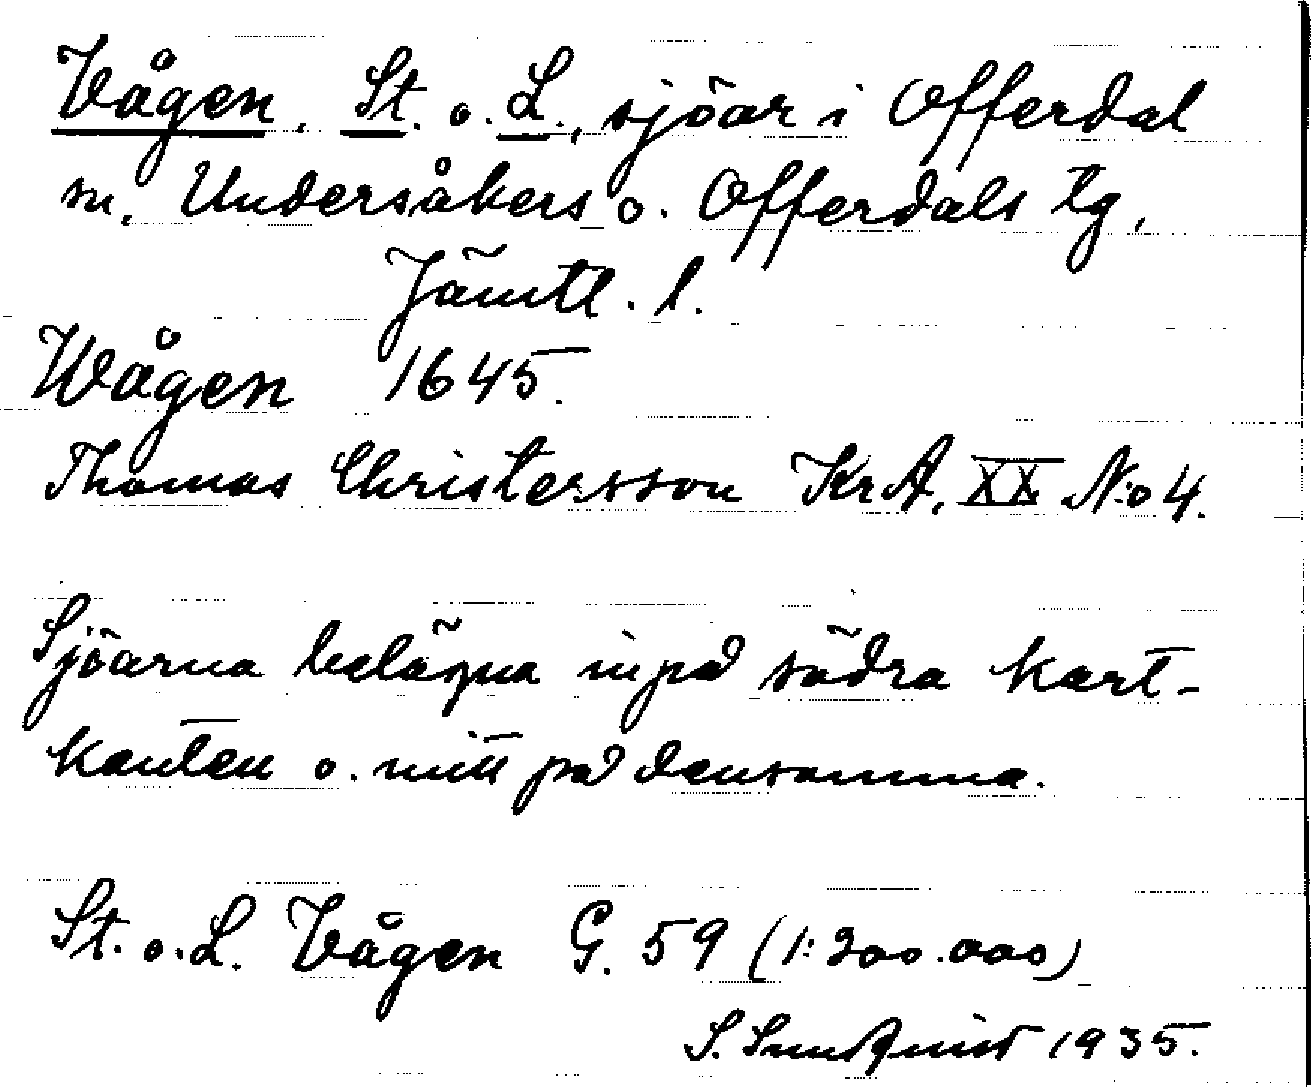 Vågen, St. o. L., sjöar i Offerdal
sn, Undersåkers o. Offerdals tg,
Jämtl. l.
Wågen 1645.
Thomas Christersson Kr.A. XX N:o 4.
Sjöarna belägna inpå södra kart-
kanten o. mitt på densamma.
St. o. L. Vågen G. 59 (1:200.000)
S. Sundquist 1935.